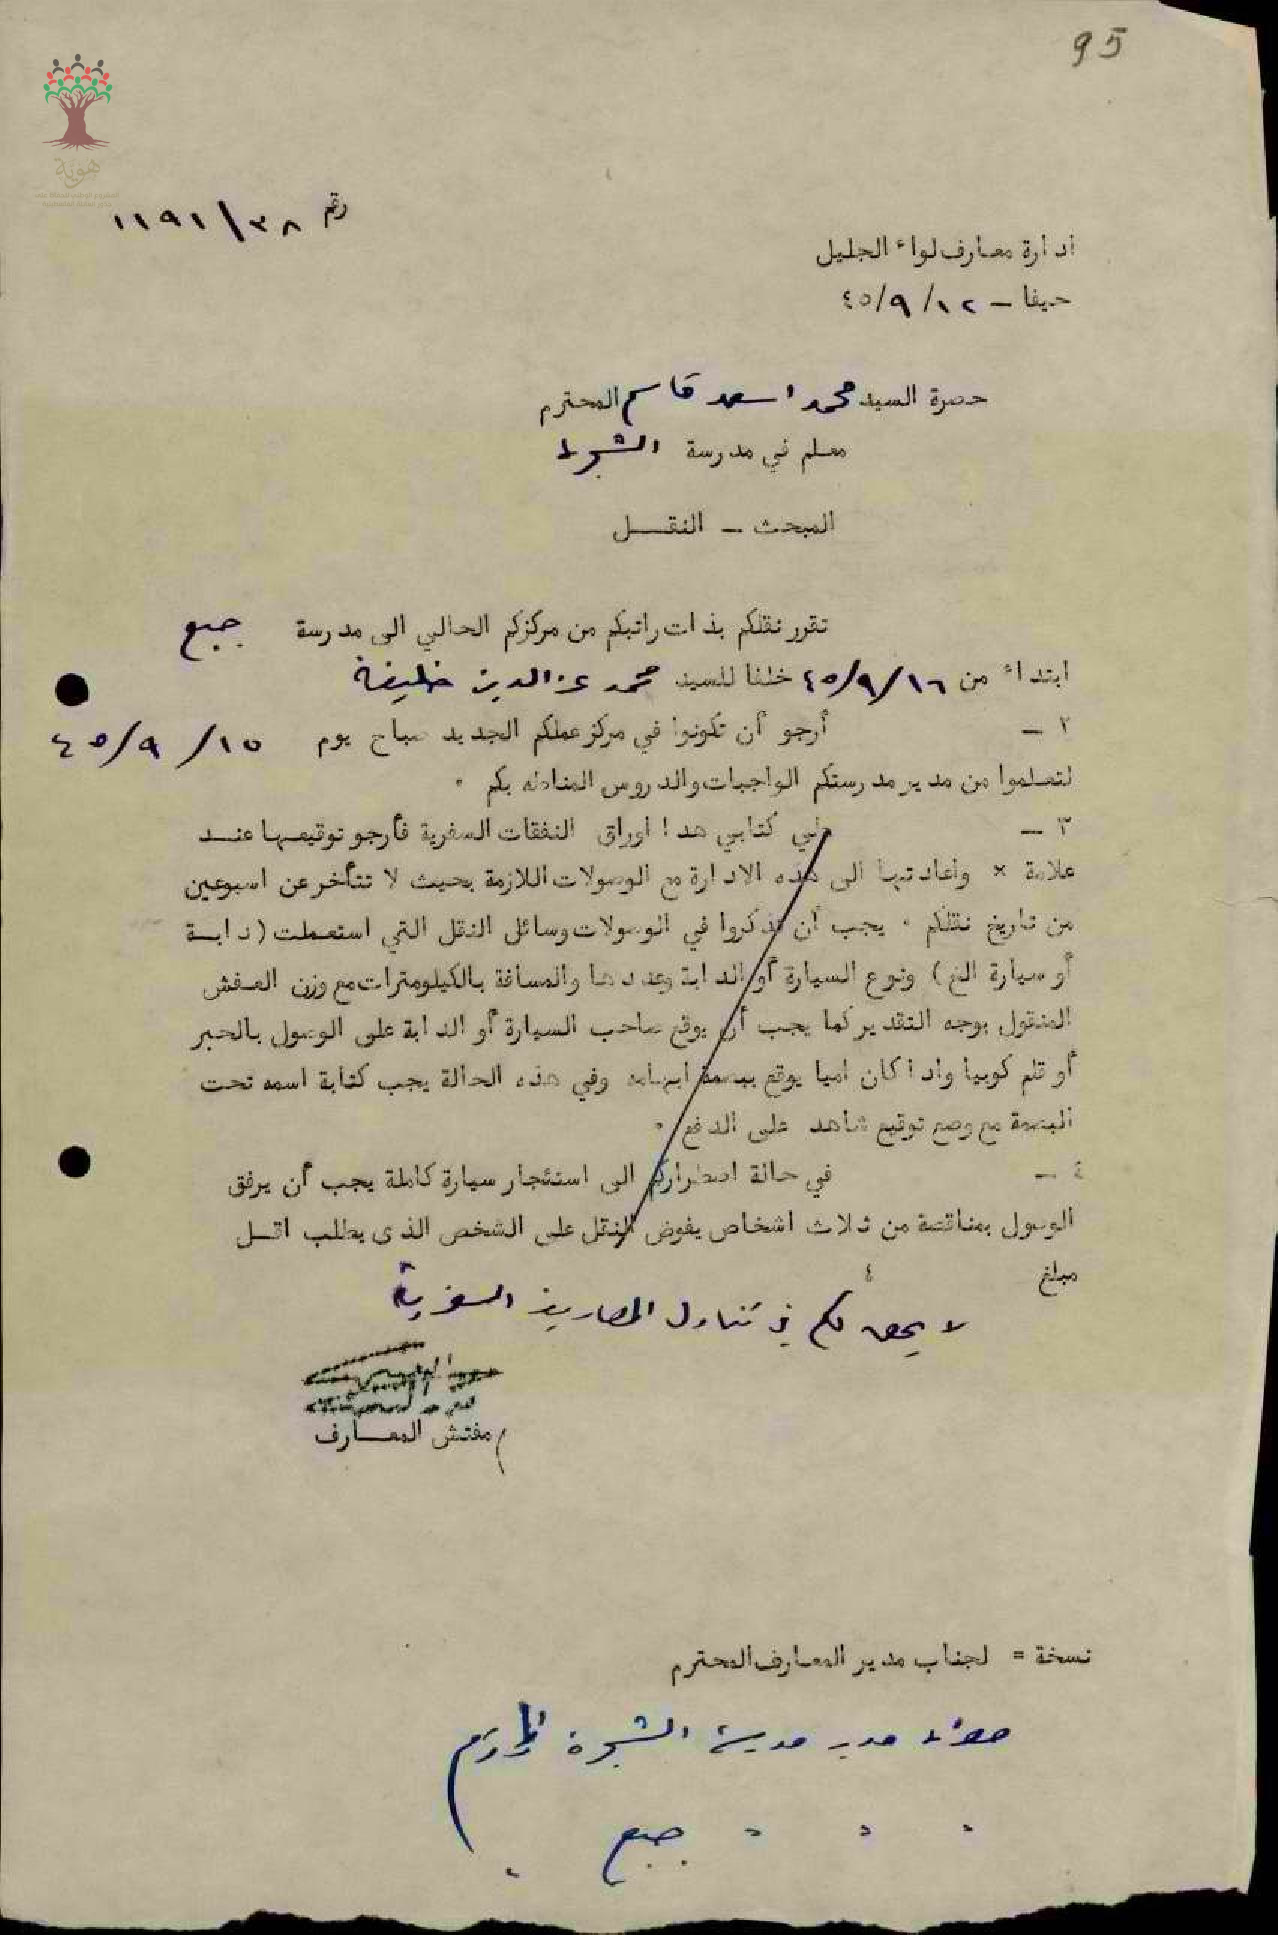 95
هوية
رقم ٣٨/١١٩١
ادارة معارف لواء الجليل
حيفا - ١٢/٩/٤٥
حضرة السيد محمد اسعد قاسم المحترم
معلم في مدرسة الشجرة
المبحث - النقـــل
تقرر نقلكم بذات راتبكم من مركزكم الحالي الى مدرسة جبع
ابتداء من ١٦/٩/٤٥ خلفا للسيد محمد عز الدين خليفة
٢ - أرجو أن تكونوا في مركز عملكم الجديد صباح يوم ١٥/٩/٤٥
لتعلموا من مدير مدرستكم الواجبات والدروس المناطه بكم ٠
٣ - طي كتابي هذا اوراق النفقات السفرية فأرجو توقيعها عند
علامة × واعادتها الى هذه الادارة مع الوصولات اللازمة بحيث لا تتأخر عن اسبوعين
من تاريخ نقلكم ٠ يجب أن تذكروا في الوصولات وسائل النقل التي استعملت (دابة
أو سيارة الخ) ونوع السيارة أو الدابة وعددها والمسافة بالكيلومترات مع وزن العفش
المنقول بوجه التقدير كما يجب أن يوقع صاحب السيارة أو الدابة على الوصول بالحبر
أو قلم كوبيا واذا كان اميا يوقع ببصمة ابهامه وفي هذه الحالة يجب كتابة اسمه تحت
البصمة مع وضع توقيع شاهد على الدفع ٠
٤ - في حالة اضطراركم الى استئجار سيارة كاملة يجب أن يرفق
الوصول بمناقصة من ثلاث اشخاص يفوض النقل على الشخص الذى يطلب اقـل
مبلغ
لا يحق لكم في تناول المصاريف السفرية
مفتش المعــارف
نسخة = لجناب مدير المعارف المحترم
حضرة مدير مدرسة الشجرة المحترم
" " " جبع "